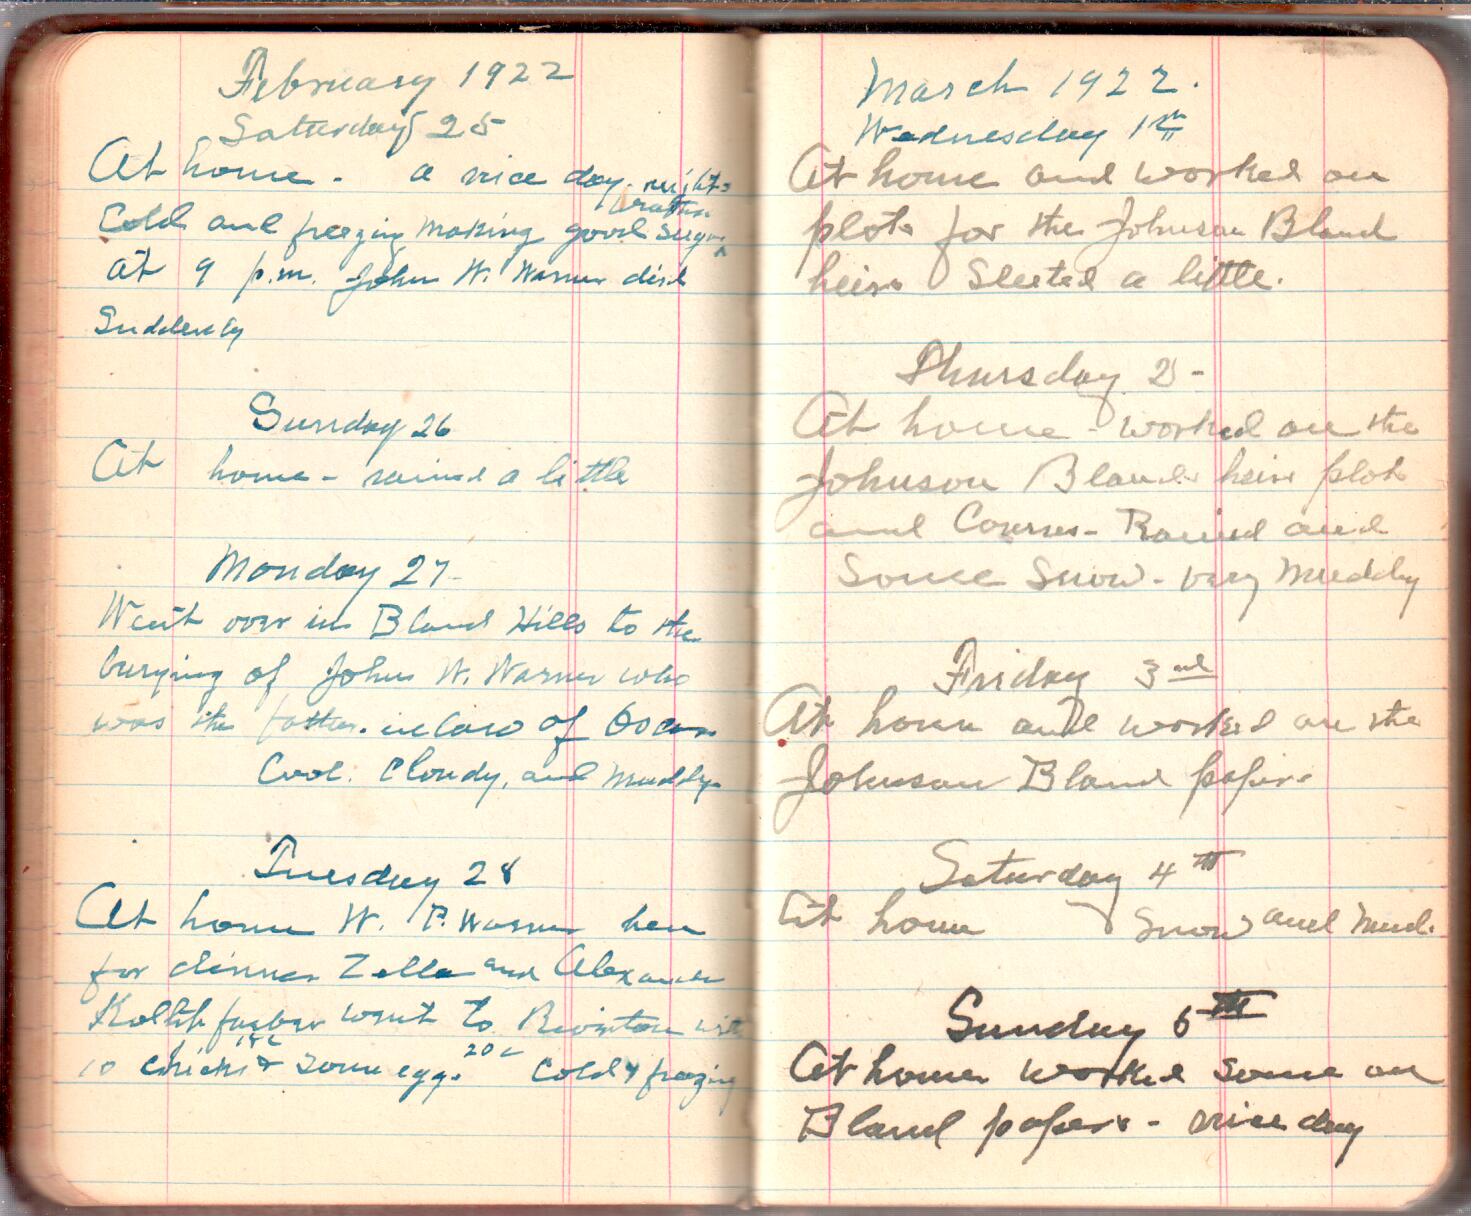 February 1922
Saturday 25
At home - a nice day. nights
Cold and freezing making good sugar weather
At 9 p.m. John W. Warner died
Suddenly
Sunday 26
At home - rained a little
Monday 27-
Went over in Bland Hills to the
burying of John W. Warner who
was the father-in law of Oscar
Cool. Cloudy, and Muddy.
Tuesday 28
At home W. P. Warner here
for dinner Zella and Alexander
went to
10 chicks 18c & some eggs 20c Cold & freezing
March 1922.
Wednesday 1st
At home and worked on
plots for the Johnson Bland
heirs Sleeted a little.
Thursday 2 -
At home - worked on the
Johnson Bland heirs plot
and Courses - Rained and
Some Snow - very Muddy
Friday 3rd
At home and worked on the
Johnson Bland papers
Saturday 4th
At home Snow and Mud.
Sunday 5th
At home worked some on
Bland papers - nice day